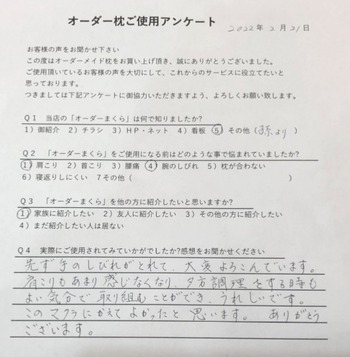 オーダー枕ご使用アンケート
2022年2月21日
お客様の声をお聞かせ下さい
この度はオーダーメイド枕をお買い上げ頂き、誠にありがとうございました。
ご使用頂いているお客様の声を大切にして、これからのサービスに役立てたいと
思っております。
つきましては下記アンケートに御協力いただきますよう、よろしくお願い致します。
Q1 当店の「オーダーまくら」は何で知りましたか?
1)御紹介 2)チラシ 3)HP・ネット 4)看板 5)その他(より)
Q2 「オーダーまくら」をご使用になる前はどのような事で悩まれていましたか?
1)肩こり 2)首こり 3)腰痛 4)腕のしびれ 5)枕が合わない
6)寝返りしにくい 7その他( )
Q3 「オーダーまくら」を他の方に紹介したいと思いますか?
1)家族に紹介したい 2)友人に紹介したい 3)その他の方に紹介したい
4)まだ紹介したい人は居ない
Q4 実際にご使用されてみていかがでしたか?感想をお聞かせください
先ず手のしびれがとれて、大変よろこんでいます。
肩こりもあまり感じなくなり、夕方調理をする時も
よい気分で取り組むことができ、うれしいです。
このマクラにかえてよかったと思います。ありがとう
ございます。